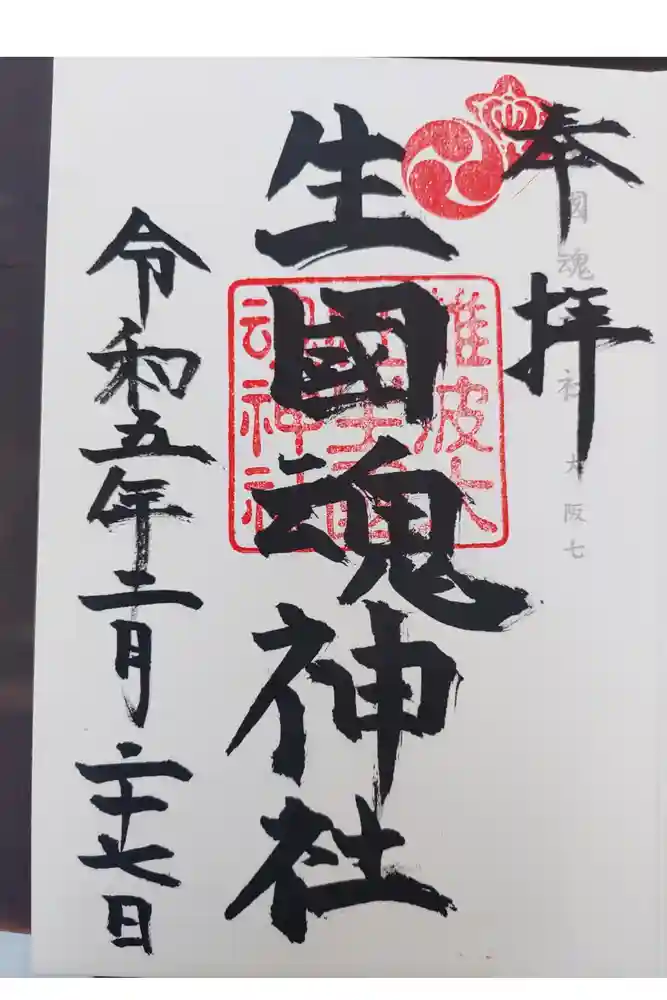 奉拝
生國魂神社
難波大
生國
魂神社
國魂 社 大阪七
令和五年二月二十七日